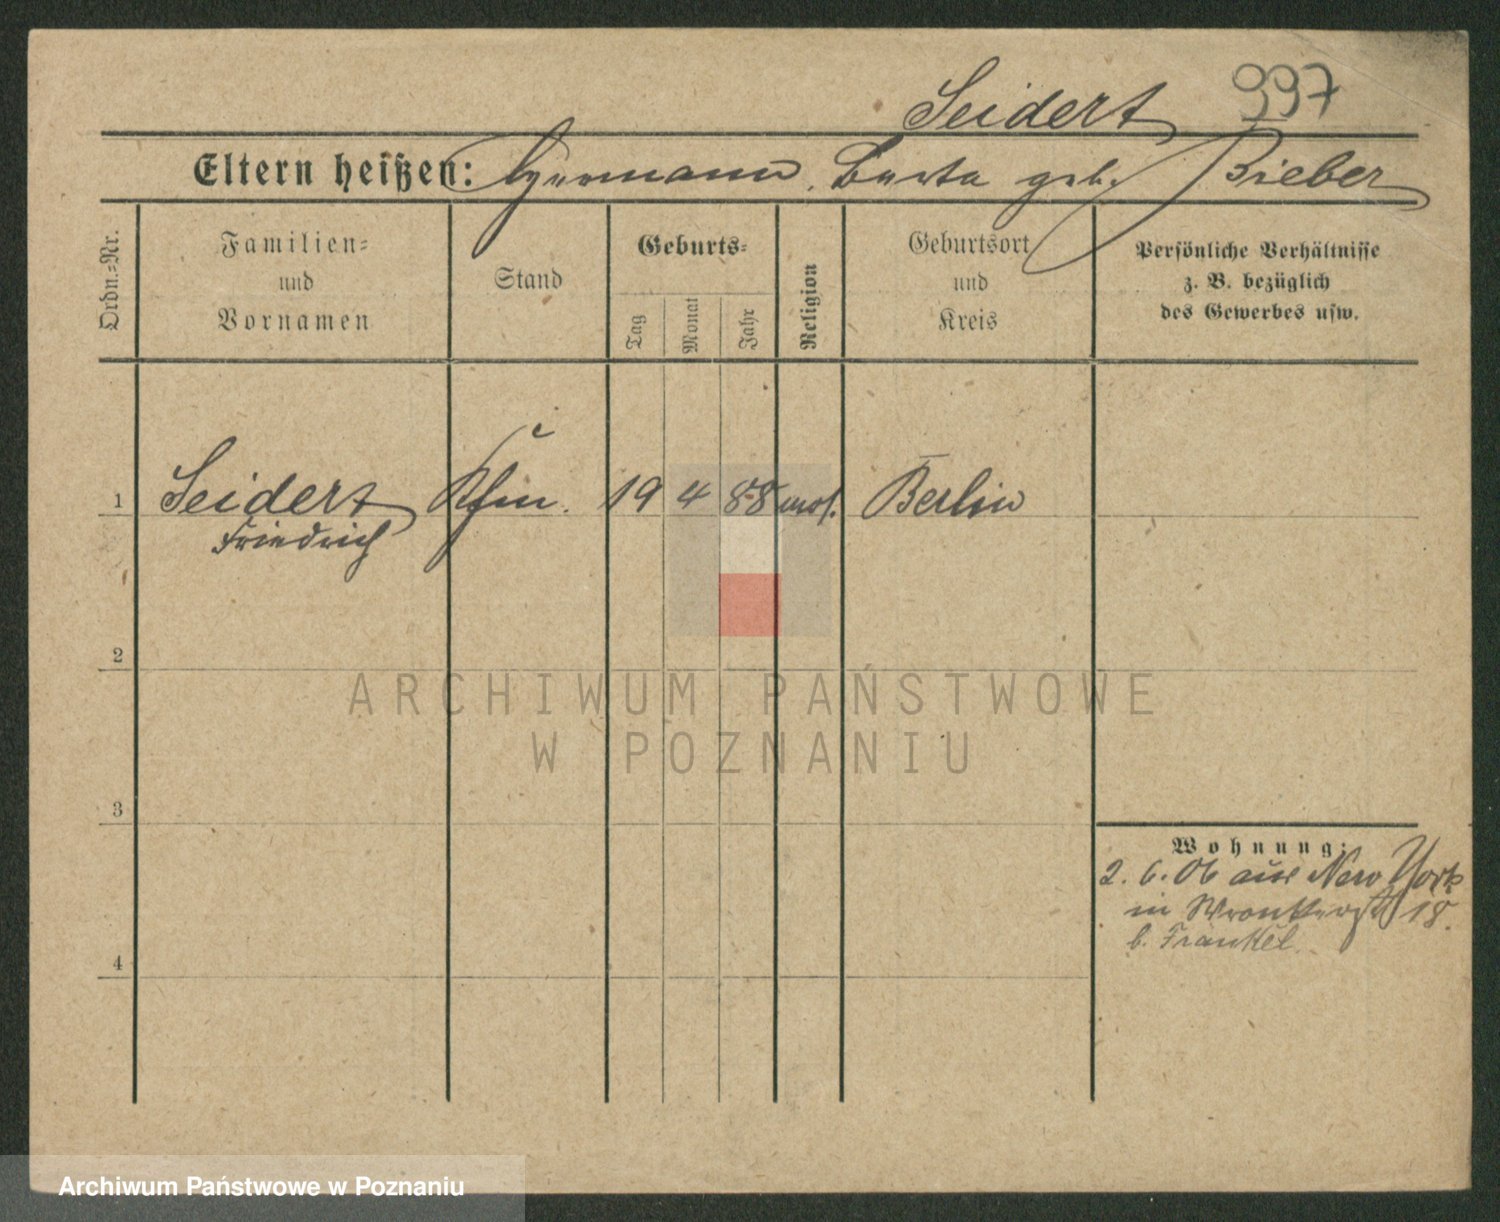 Seidert 997
Eltern heißen: Hermann, Berta geb. Bieber
Ordn.=Nr.
Familien=
und
Vornamen
Stand
Geburts=
Tag
Monat
Jahr
Religion
Geburtsort
und
Kreis
Persönliche Verhältnisse
z. B. bezüglich
des Gewerbes usw.
1 Seidert Kfm. 19 4 88 mos. Berlin
Friedrich
2
3
4
Wohnung:
2. 6. 06 aus New York
in Wronkerstr 18.
b. Fränkel.
ARCHIWUM PAŃSTWOWE
W POZNANIU
Archiwum Państwowe w Poznaniu